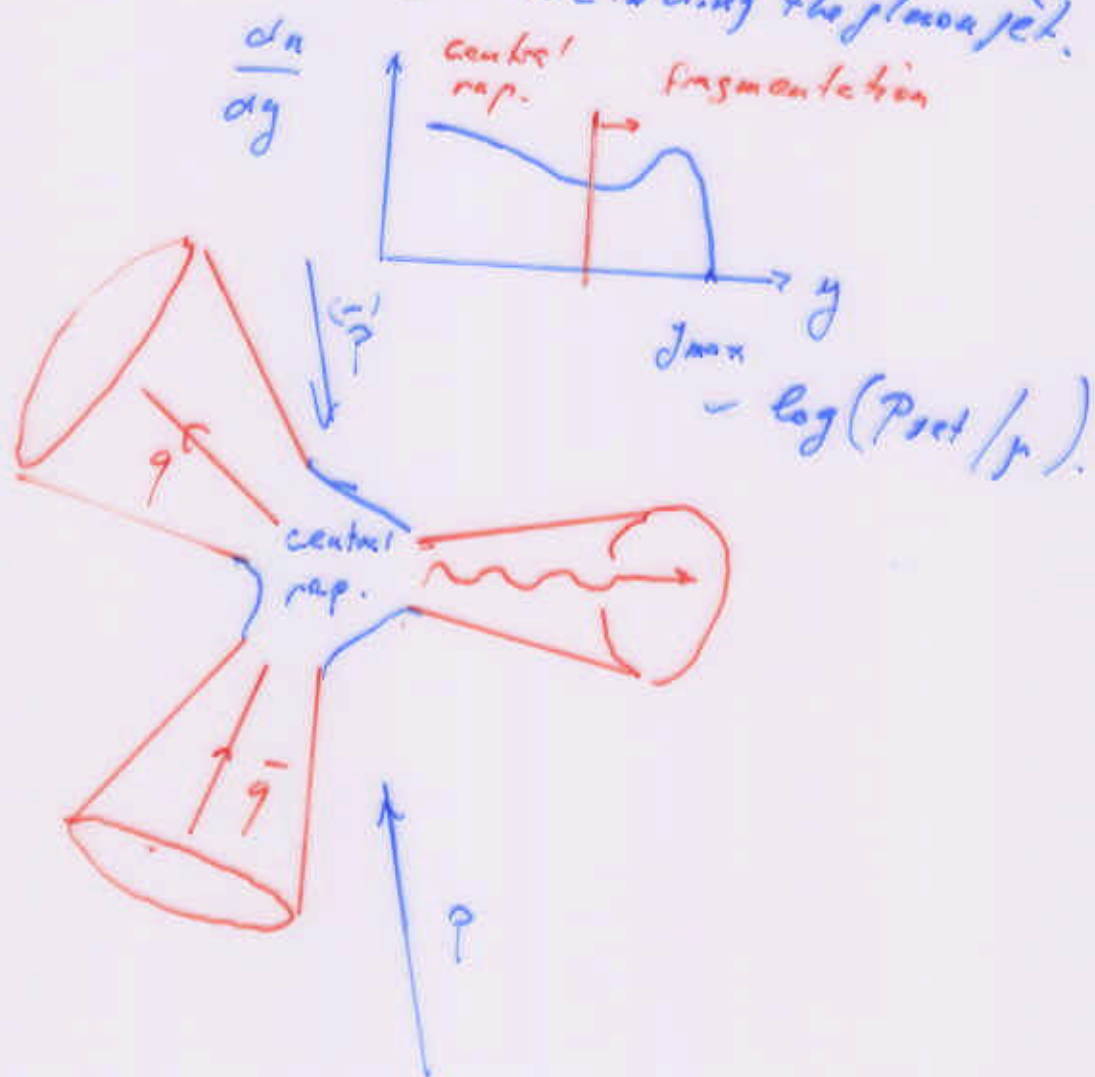 the gluon jet.
dn
dy
central
rap.
fragmentation
y
(-)
p
y max
~ log (P jet / μ).
q
central
rap.
q̄
p